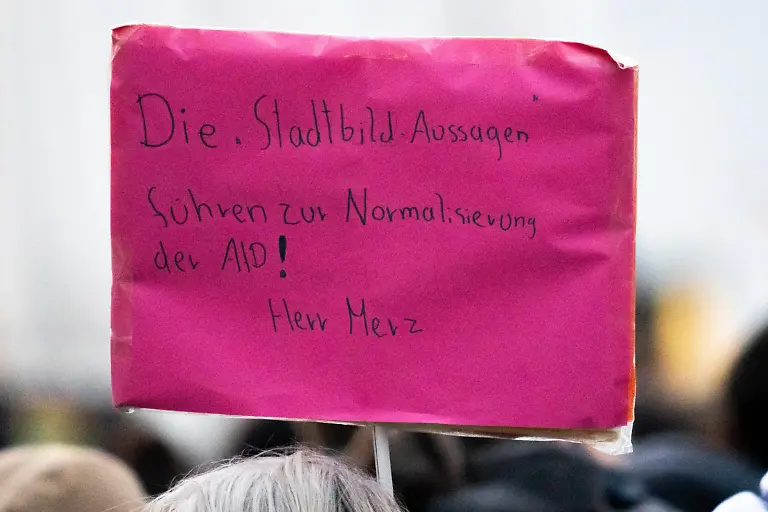 Die „Stadtbild-Aussagen"
führen zur Normalisierung
der AfD!
Herr Merz